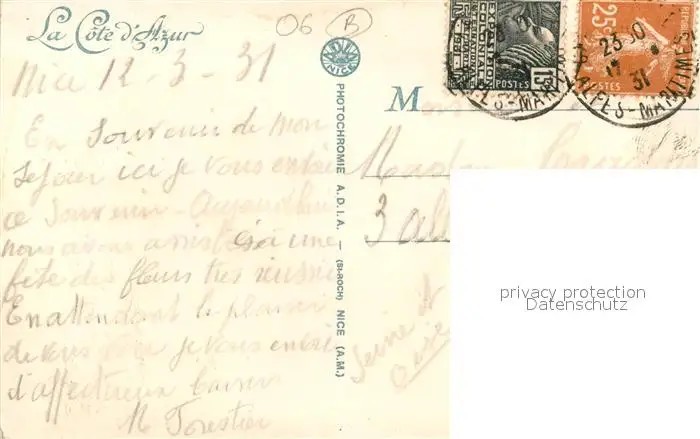 La Côte d'Azur
06 B
Nice 12-3-31
En Souvenir de mon
Séjour ici je vous envoie
ce Souvenir - Aujourd'hui
nous avons assistés à une
fête des fleurs très réussie
En attendant le plaisir
de vous je vous envoie
d'affectueux baisers
M Forestier
NICE
PHOTOCHROMIE A.D.I.A. - (St-ROCH) NICE (A.M.)
EXPOSITION COLONIALE INTERNATIONALE
POSTES 15c
25c
POSTES
23 30
12 31
ALPES-MARITIMES
M
3
Seine et
Oise
privacy protection
Datenschutz